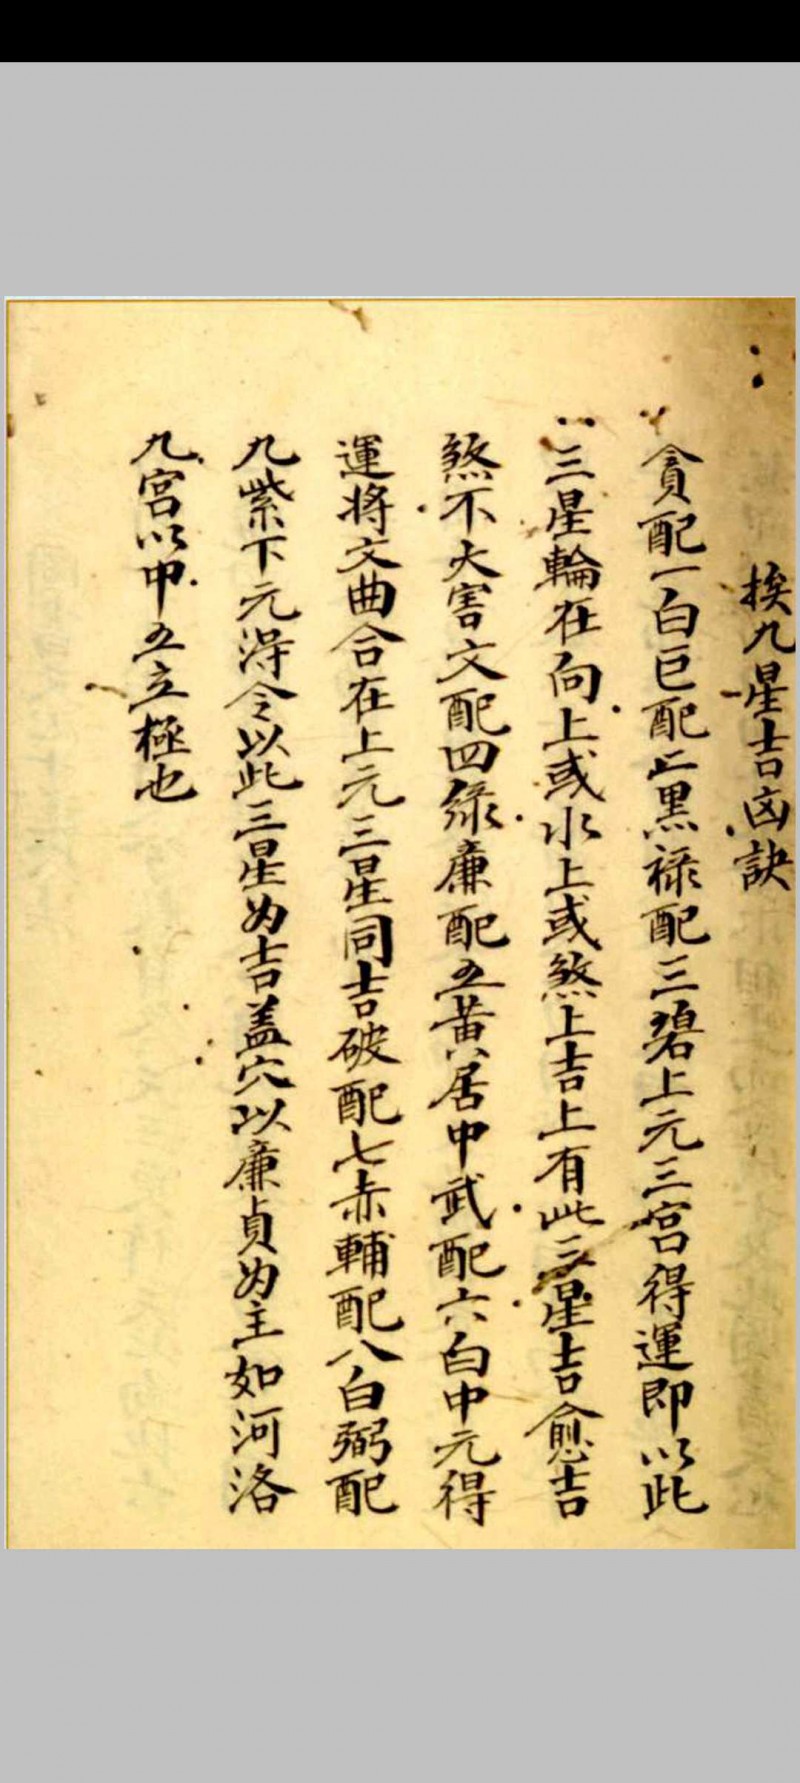 挨九星吉凶訣
貪配一白巨配二黑祿配三碧上元三宮得運即以此
三星輪在向上或水上或煞上吉上有此三星吉愈吉
煞不大害文配四綠廉配五黃居中武配六白中元得
運將文曲合在上元三星同吉破配七赤輔配八白弼配
九紫下元得令以此三星为吉蓋穴以廉貞为主如河洛
九宮以中五立極也